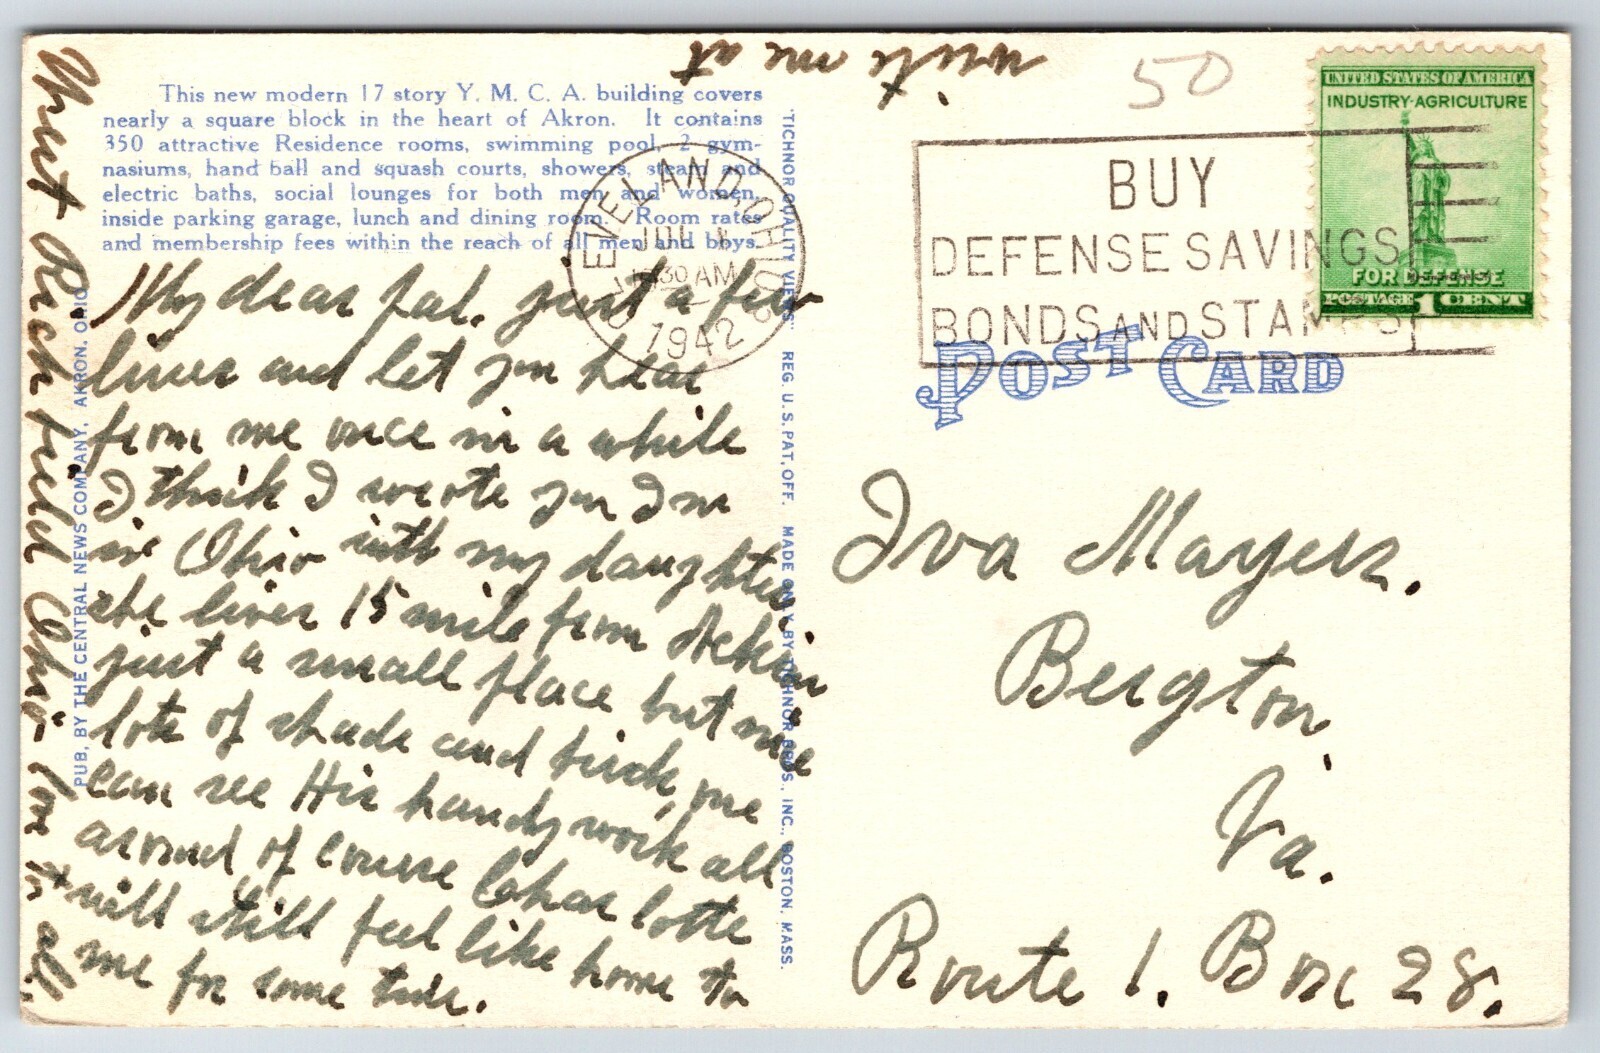 This new modern 17 story Y. M. C. A. building covers
nearly a square block in the heart of Akron. It contains
350 attractive Residence rooms, swimming pool, 2 gym-
nasiums, hand ball and squash courts, showers, steam and
electric baths, social lounges for both men and women,
inside parking garage, lunch and dining room. Room rates
and membership fees within the reach of all men and boys.
My dear pal. just a few
lines and let you hear
from me once in a while
I think I wrote you Im
in Ohio with my daughter
she lives 15 mile from Ackron
just a small place but nice
lots of shade and birds, we
can see His handy work all
around of course Charlotte
will still feel like home to
me for some time.
write me at
West Richfield Ohio
Love to all.
PUB. BY THE CENTRAL NEWS COMPANY, AKRON, OHIO
"TICHNOR QUALITY VIEWS" REG. U. S. PAT. OFF. MADE ONLY BY TICHNOR BROS., INC., BOSTON, MASS.
CLEVELAND, OHIO
JUL
30 AM
1942
50
BUY
DEFENSE SAVINGS
BONDS AND STAMPS
UNITED STATES OF AMERICA
INDUSTRY·AGRICULTURE
FOR DEFENSE
POSTAGE 1 CENT
POST CARD
Iva Mayers.
Bergton,
Va.
Route 1. Box 28.